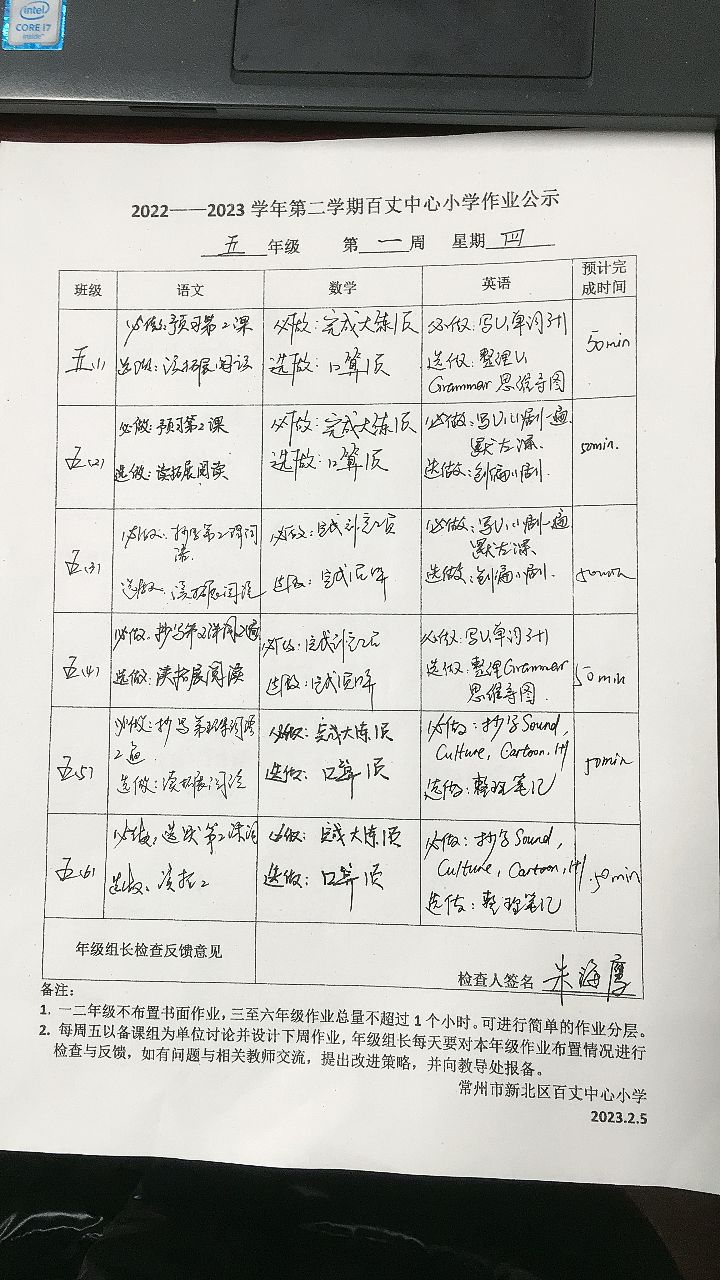 intel
CORE i7
inside
2022——2023 学年第二学期百丈中心小学作业公示
五 年级 第 一 周 星期 四
班级 语文 数学 英语 预计完成时间
五(1) 必做:预习第2课 必做:完成大练1页 必做:写U1单词3+1 50min
选做:读拓展阅读 选做:口算1页 选做:整理U1
Grammar 思维导图
五(2) 必做:预习第2课 必做:完成大练1页 必做:写U1小剧一遍 50min.
默左课.
选做:读拓展阅读 选做:口算1页 选做:创编小剧.
五(3) 必做:抄写第2课词语. 必做:完成 必做:写U1小剧一遍 50min
默左课.
选做:读拓展阅读 选做:完成 选做:创编小剧.
五(4) 必做:抄写第2课词2遍 必做:完成 必做:写U1单词3+1 50min
选做:读拓展阅读 选做:完成 选做:整理Grammar
思维导图.
五(5) 必做:抄写第2课词语 必做:完成大练1页 必做:抄写Sound, 50min
2遍 Culture, Cartoon, 1+1
选做:读拓展阅读 选做:口算1页 选做:整理笔记
五(6) 必做:第2课词 必做:完成大练1页 必做:抄写Sound, 50min
Culture, Cartoon, 1+1
选做:读拓2 选做:口算1页 选做:整理笔记
年级组长检查反馈意见
检查人签名 朱海
备注:
1. 一二年级不布置书面作业,三至六年级作业总量不超过 1 个小时。可进行简单的作业分层。
2. 每周五以备课组为单位讨论并设计下周作业,年级组长每天要对本年级作业布置情况进行
检查与反馈,如有问题与相关教师交流,提出改进策略,并向教导处报备。
常州市新北区百丈中心小学
2023.2.5